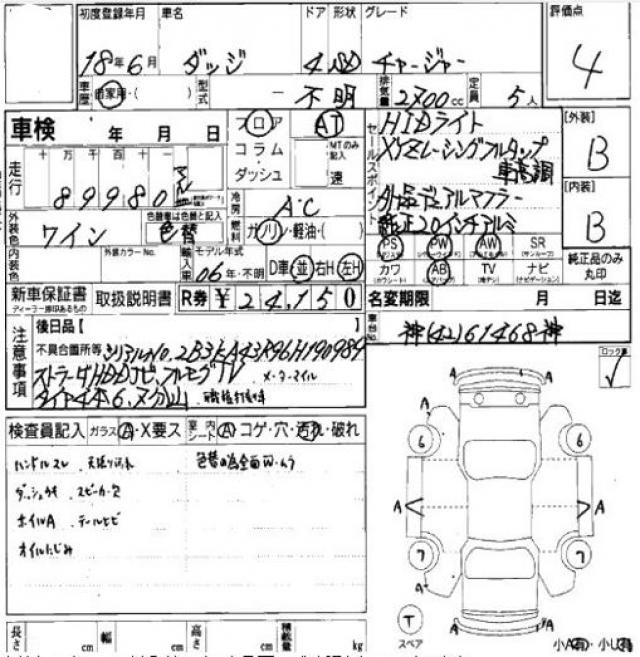 初度登録年月 車名 ドア 形状 グレード 評価点
18年6月 ダッジ 4 SD チャージャー 4
車歴 自家用・( ) 型式 不明 排気量 2700cc 定員 5人
車検 年 月 日 フロア AT
コラム・ダッシュ MTのみ記入 速
走行 十万千百十 89980 マイル
セールスポイント
HIDライト
XYZレーシングフルタップ
車高調
社外品デュアルマフラー
純正20インチアルミ
[外装] B
[内装] B
冷房 AC
外装色 ワイン 色替車は色替と記入 色替 燃料 ガソリン・軽油・( )
PS PW AW SR (サンルーフ) 純正品のみ丸印
カワ AB TV ナビ (ナビゲーション)
内装色 外装カラーNo. 輸入車 モデル年式 06年・不明 D車 並 右H 左H
新車保証書 取扱説明書 R券 ¥24,150 名変期限 月 日迄
ディーラー捺印あるもの
車台No. 神(42)61468神
注意事項 後日品【 】
不具合箇所等 シリアルNo.2B3KA43R96H190989
ストラーダHDDナビ、フルセグTV メーターマイル
タイヤ4本6.7分山 職権打刻車
ロック 有
検査員記入 ガラス A・X要ス 室内シート A コゲ・穴・汚れ・破れ
ハンドルスレ 天張り汚れ 色替の為全面W・ムラ
ダッシュキズ スピーカー欠
ホイルA テールヒビ
オイルにじみ
A A
A A
6 6
A A
7 7
A A
T
スペア
A
小A有・小U有
長さ cm 幅 cm 高さ cm 積載量 kg